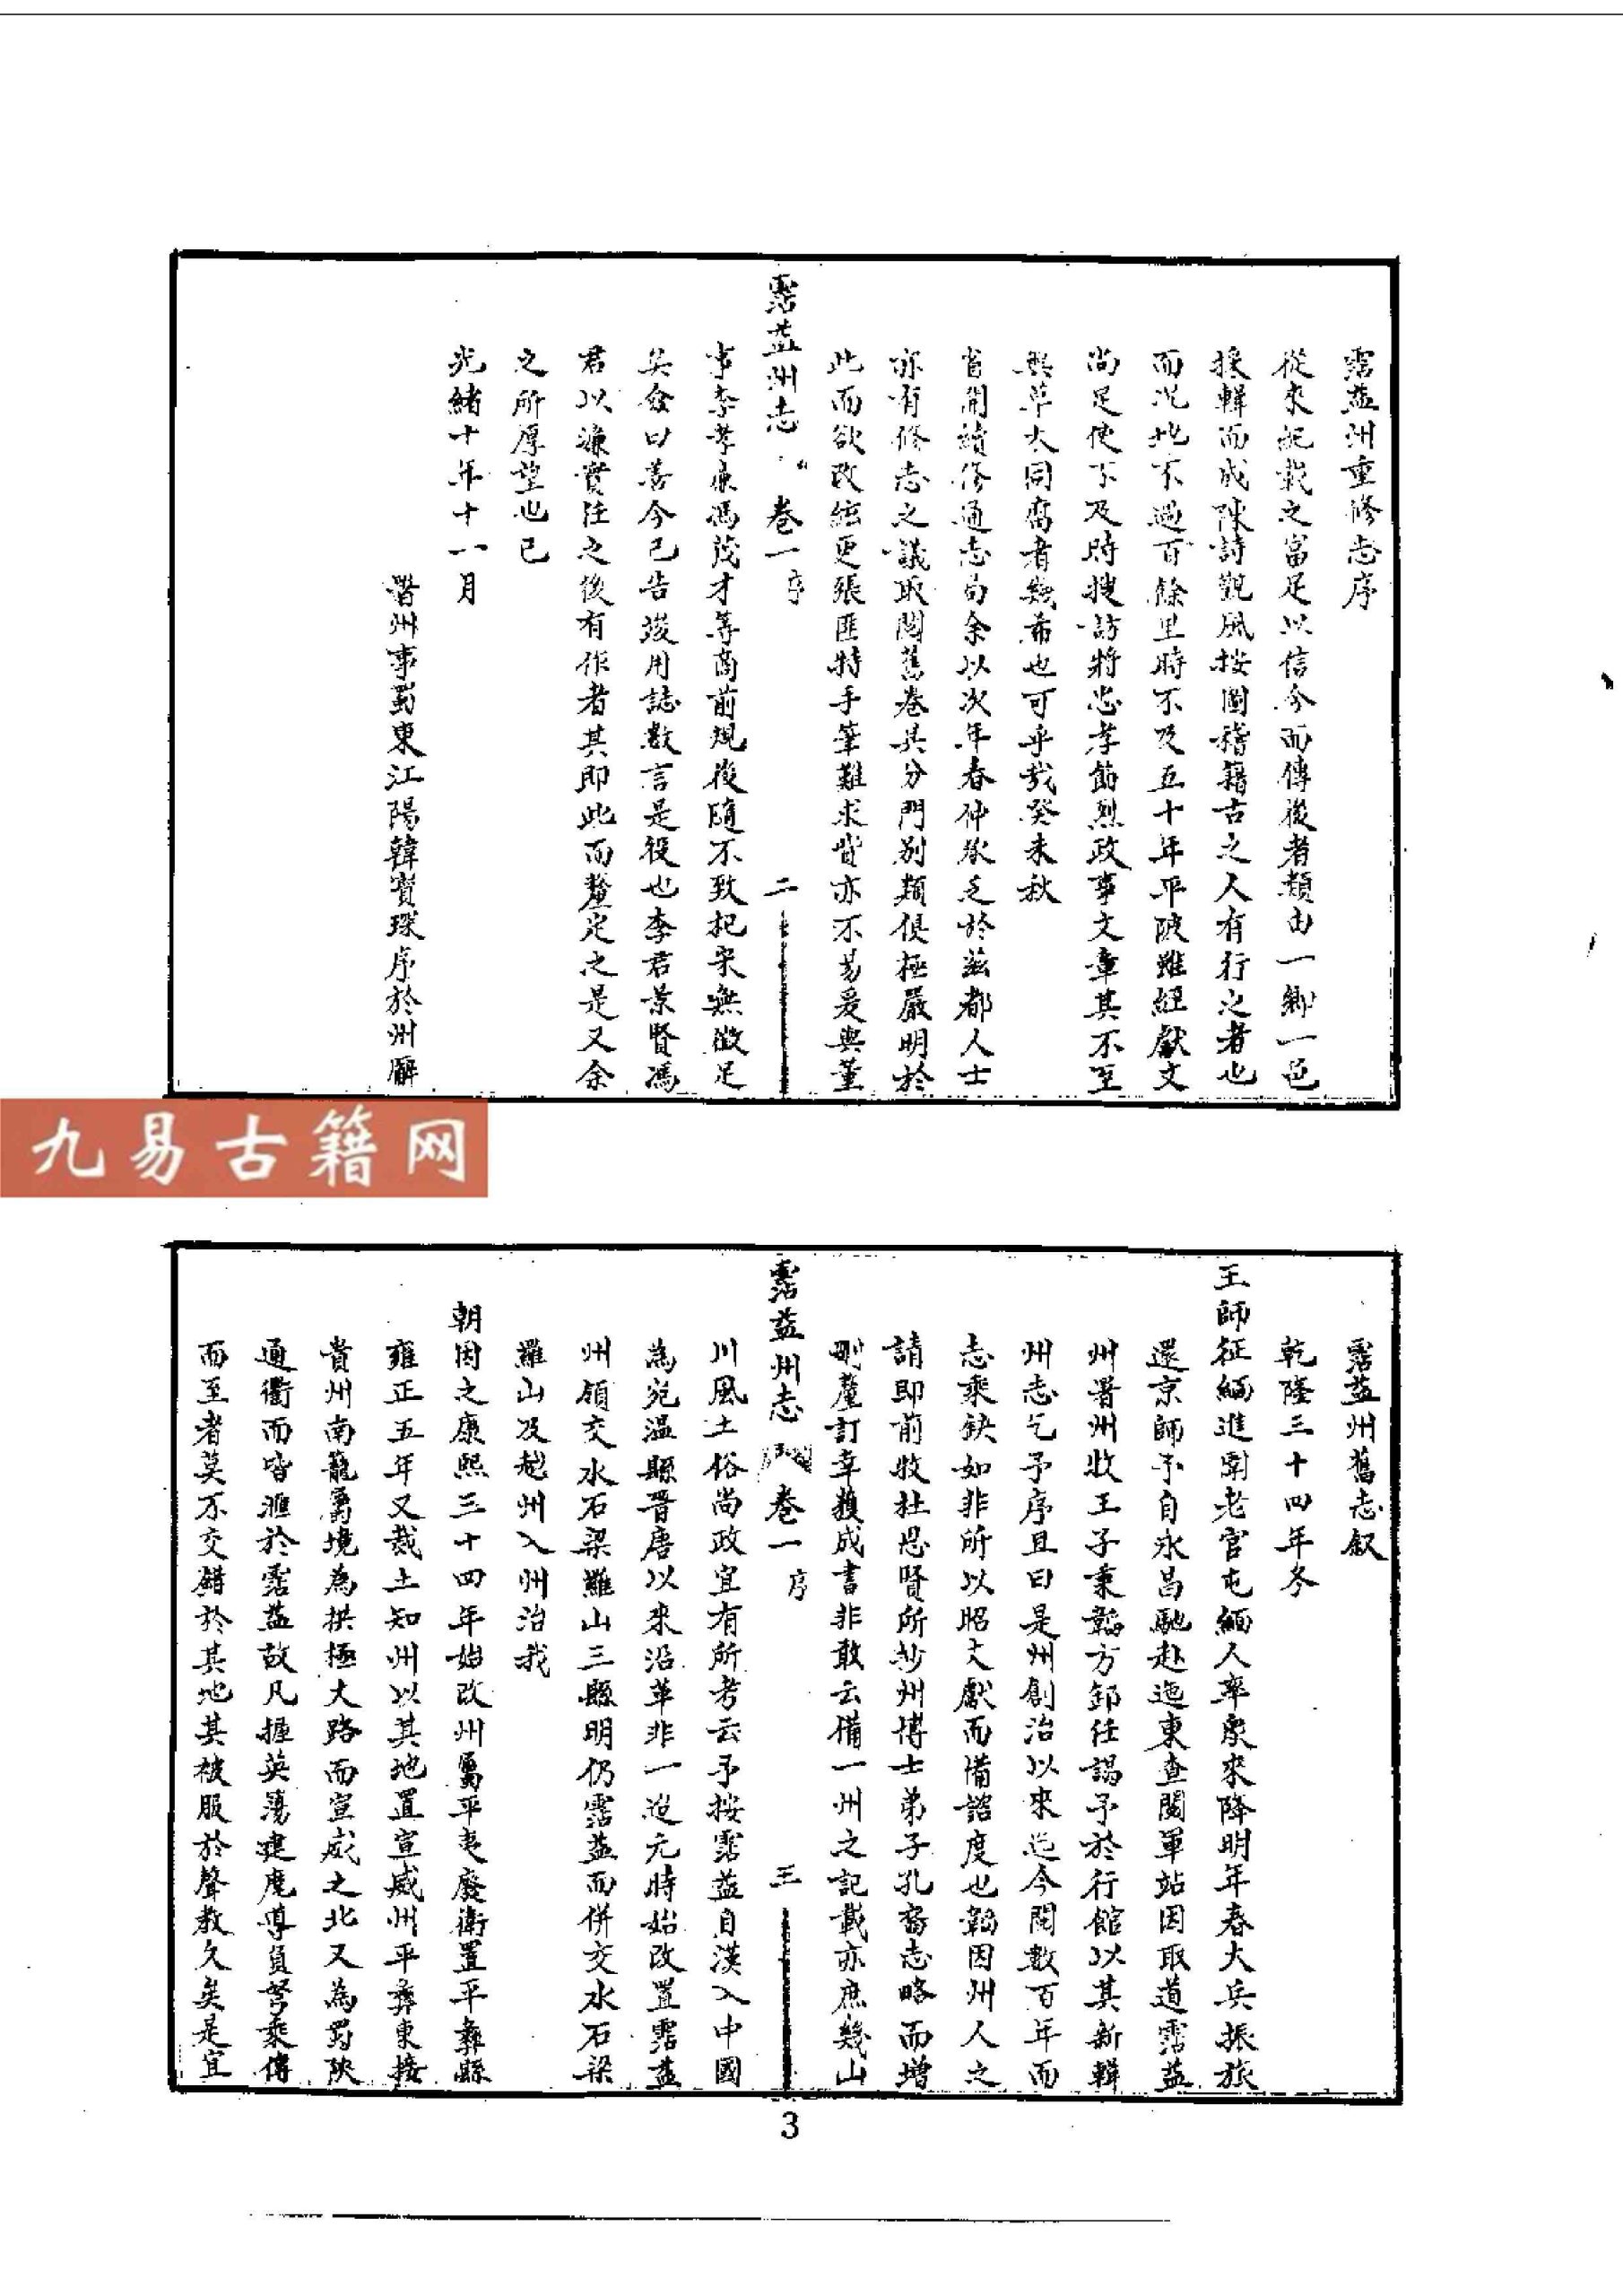 霑益州重修志序
從來記載之富足以信今而傳後者類由一鄉一邑
採輯而成陳詩觀風按圖稽籍古之人有行之者也
而况地不過百餘里時不及五十年平陂雖經獻文
尚足使不及時搜訪將忠孝節烈政事文章其不至
與草木同腐者幾希也可乎哉癸未秋
省開續修通志局余以次年春仲承乏於茲都人士
亦有修志之議取閱舊卷其分門别類俱極嚴明於
此而欲改絃更張匪特手筆難求皆亦不易爰與董
霑益州志 卷一 序 二
事李孝廉馮茂才等商前規後隨不致杞宋無徵足
矣僉曰善今已告竣用誌數言是役也李君景賢馮
君以濂實任之後有作者其即此而釐定之是又余
之所厚望也已
光緒十年十一月
署州事蜀東江陽韓寶琛序於州廨
九易古籍网
霑益州舊志叙
乾隆三十四年冬
王師征緬進剿老官屯緬人率衆來降明年春大兵振旅
還京師予自永昌馳赴迤東查閱軍站因取道霑益
州署州牧王子秉韜方卸任謁予於行館以其新輯
州志乞予序且曰是州創治以來迄今閱數百年而
志乘缺如非所以昭文獻而備諮度也韜因州人之
請即前牧杜思賢所抄州博士弟子孔裔志略而增
刪釐訂幸獲成書非敢云備一州之記載亦庶幾山
霑益州志 卷一 序 三
川風土俗尚政宜有所考云予按霑益自漢入中國
為宛温縣晋唐以來沿革非一迨元時始改置霑益
州領交水石梁羅山三縣明仍霑益而併交水石梁
羅山及越州入州治我
朝因之康熙三十四年始改州屬平夷廢衛置平彝縣
雍正五年又裁土知州以其地置宣威州平彝東接
貴州南籠屬境為拱極大路而宣威之北又為蜀陝
通衢而皆滙於霑益故凡握英蕩建麾導負弩乘傳
而至者莫不交錯於其地其被服於聲教久矣是宜
3